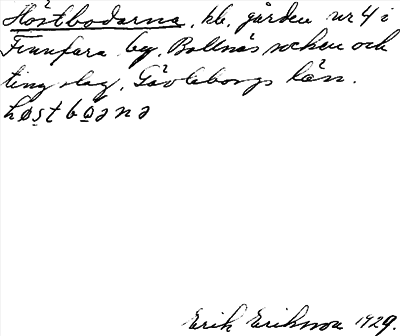 Höstbodarna, hb. gården nr 4 i
Finnfara by, Bollnäs socken och
tingslag, Gävleborgs län.
høstbøənə
Erik Erikson 1929.